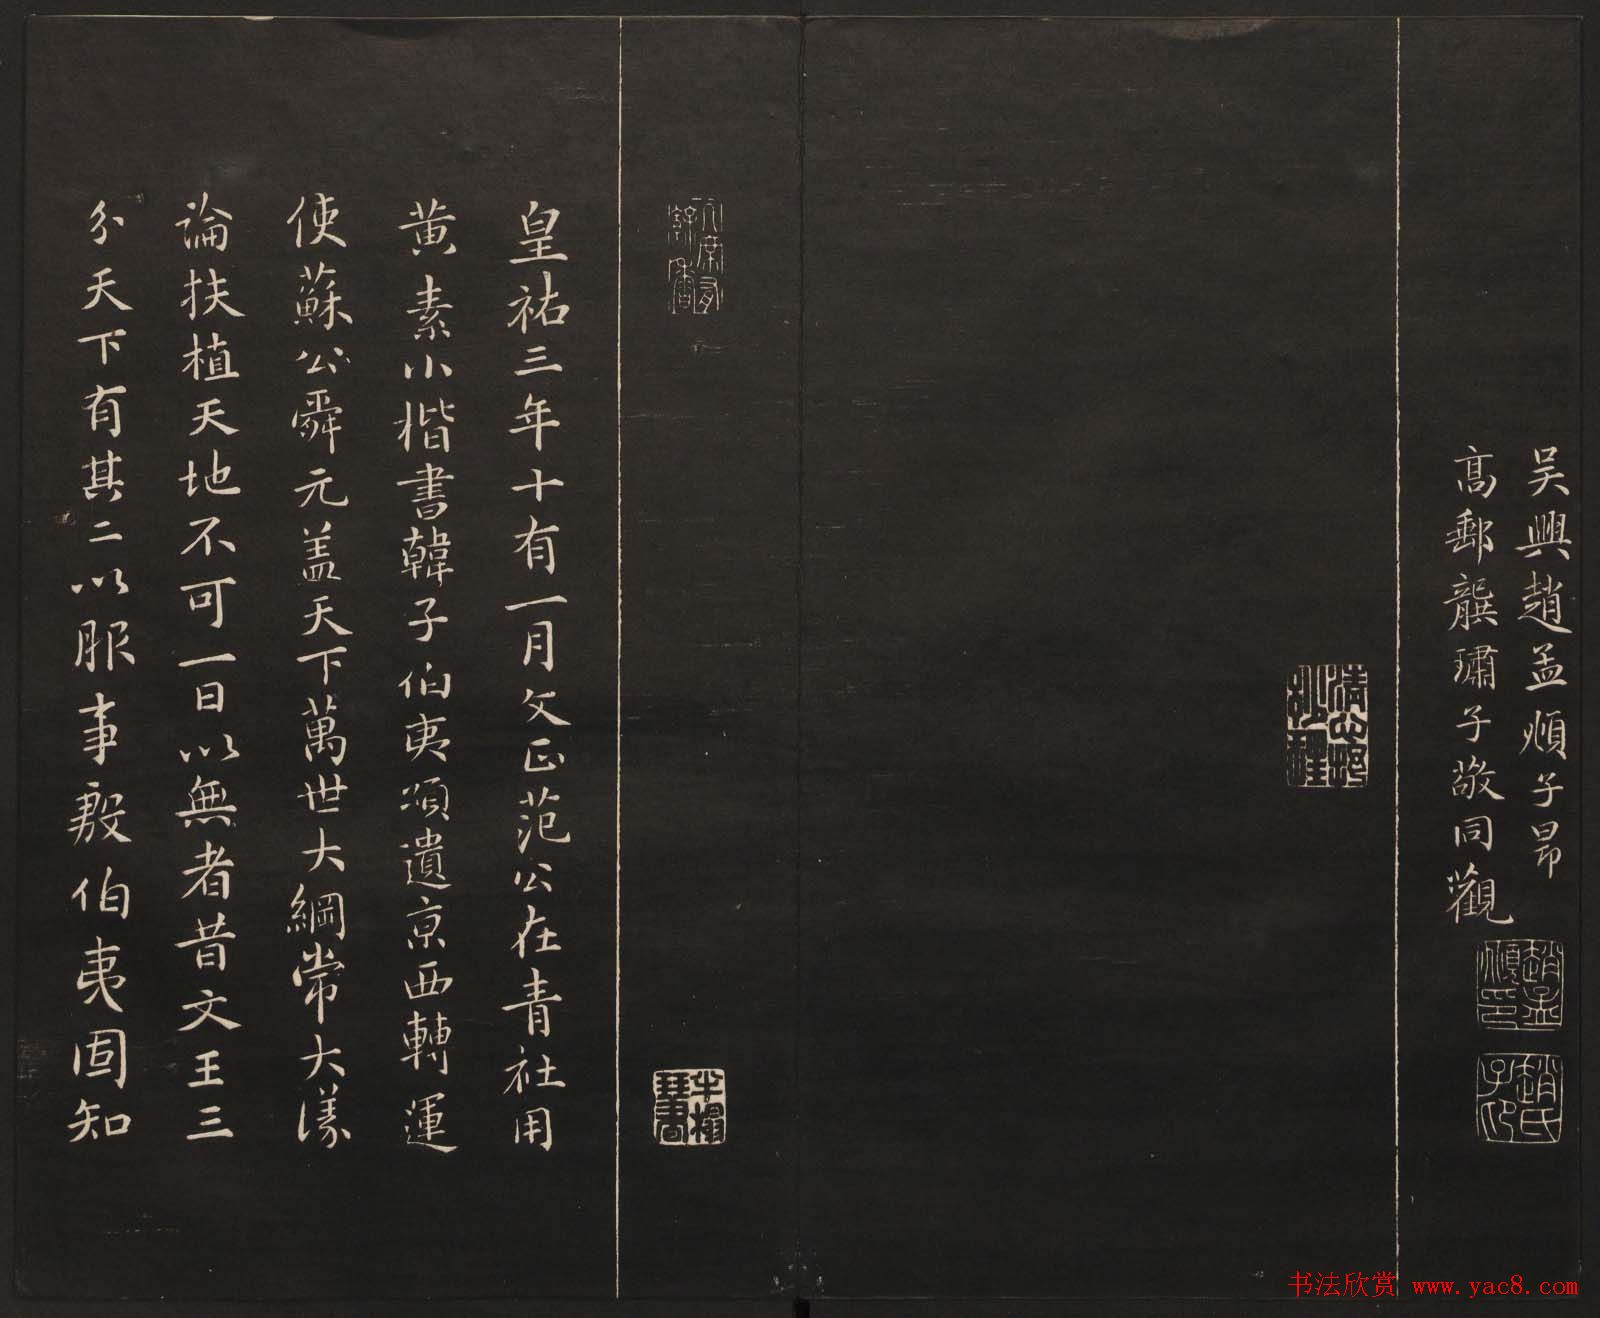 吴興趙孟頫子昂
高郵龔璛子敬同觀
趙孟頫印
趙氏子昂
皇祐三年十有一月文正范公在青社用
黄素小楷書韓子伯夷頌遺京西轉運
使蘇公舜元盖天下萬世大綱常大議
論扶植天地不可一日以無者昔文王三
分天下有其二以服事殷伯夷固知
书法欣赏 www.yac8.com